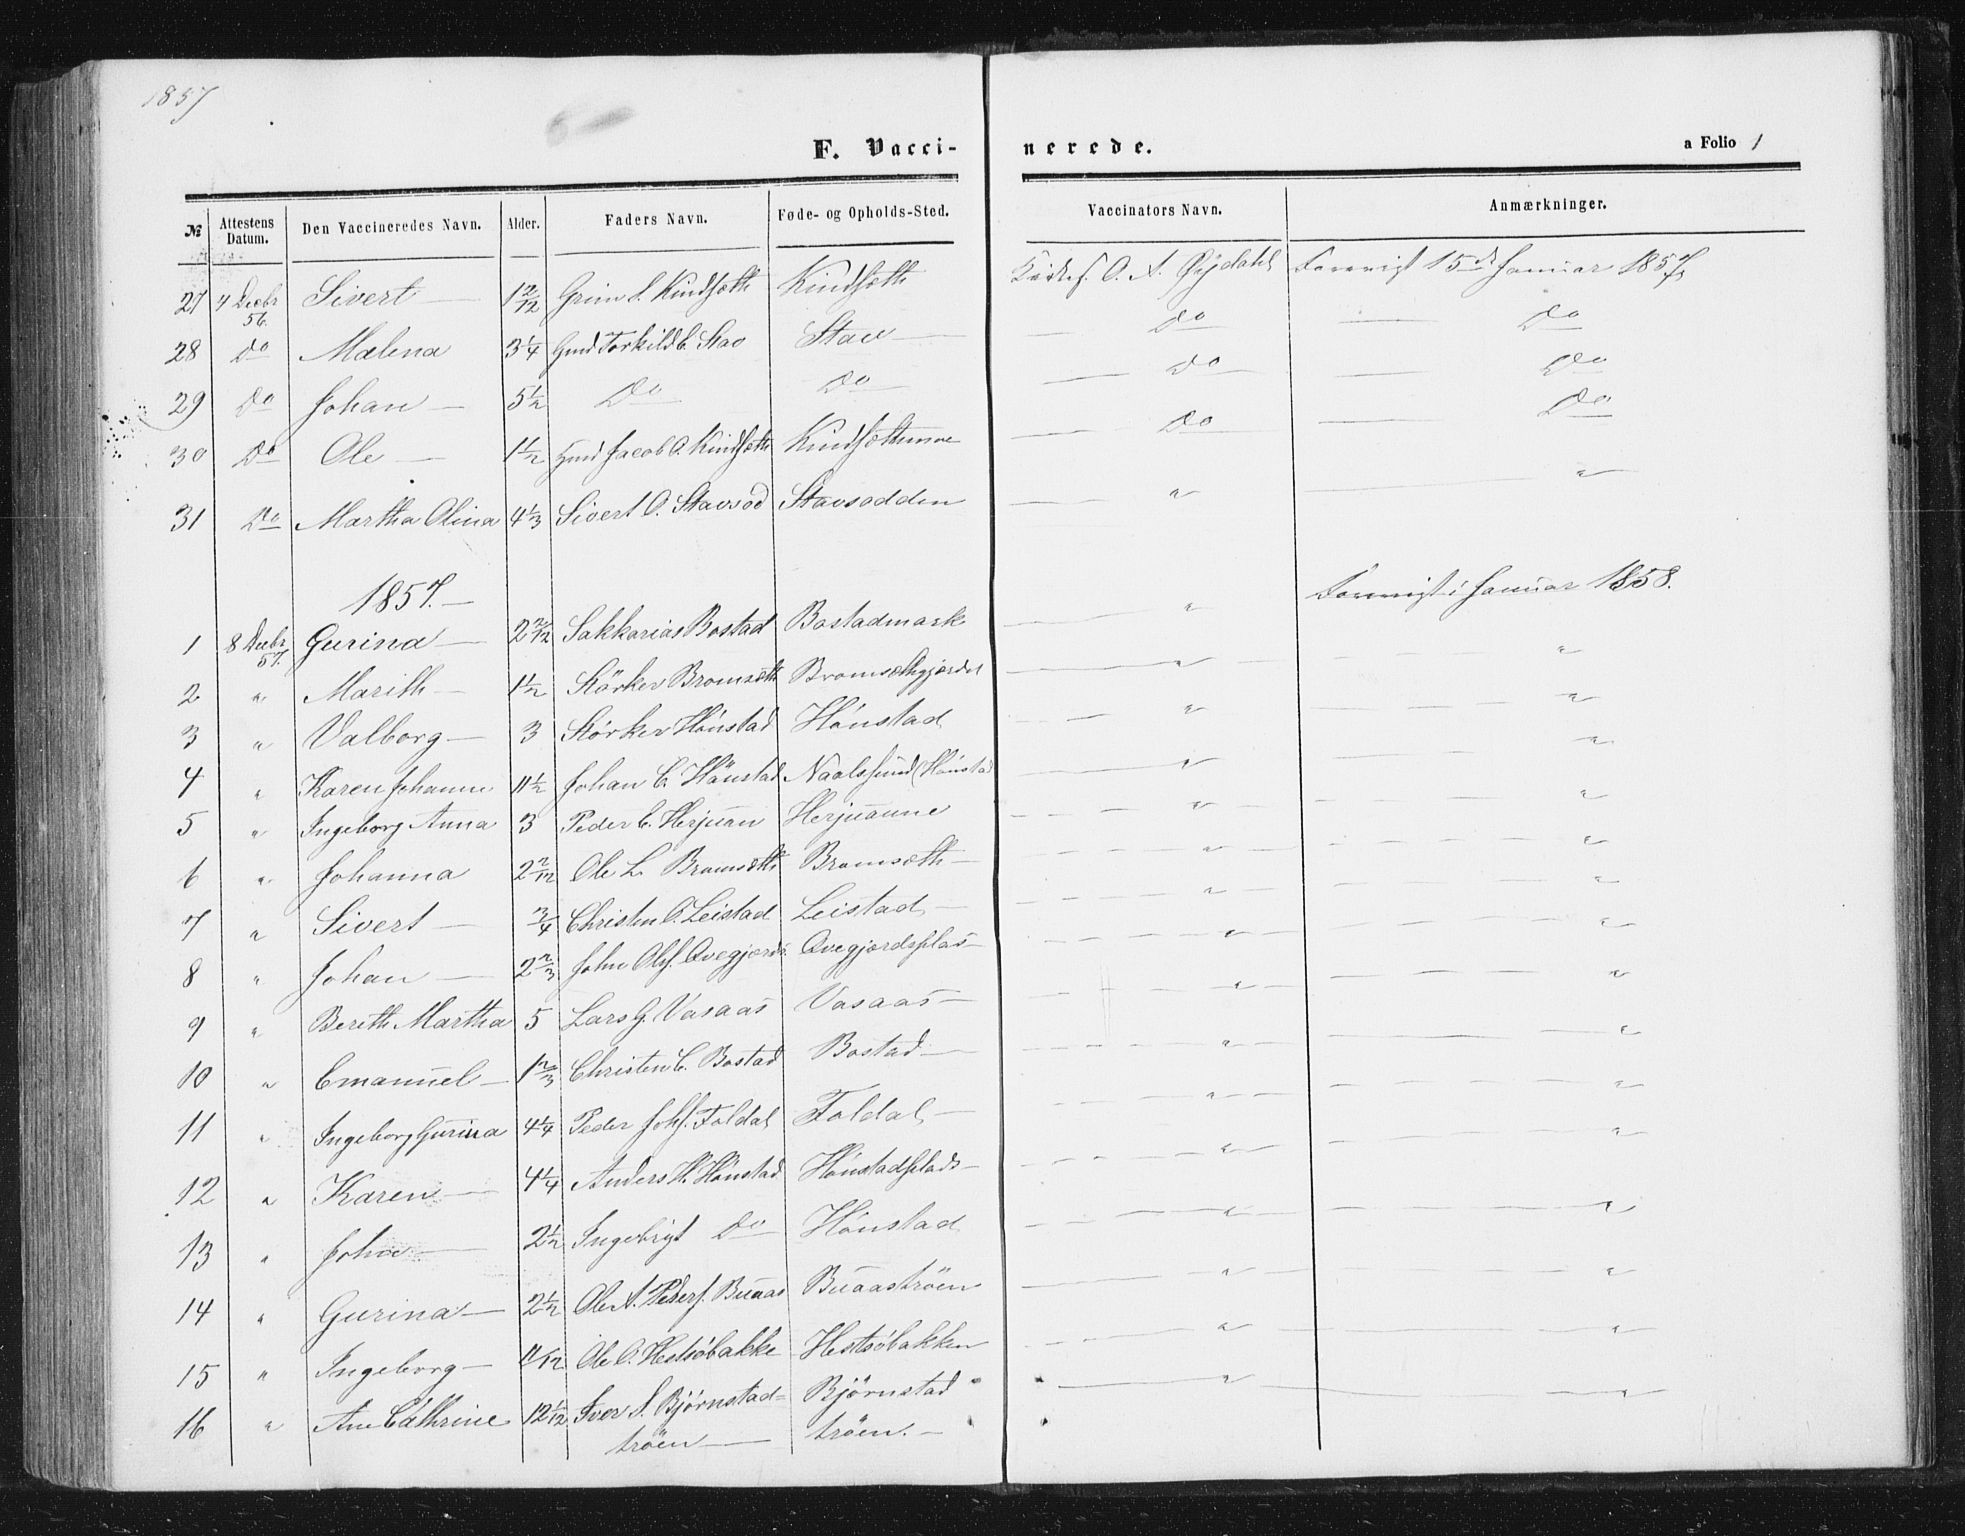 1857
F. Vacci-
nerede.
a Folio 1
№ Attestens Datum. Den Vaccineredes Navn. Alder. Faders Navn. Føde- og Opholds-Sted. Vaccinators Navn. Anmærkninger.
27 4 Decbr 56. Sivert — 1 2/12 Grim S. Kindsæth Kindsæth O. A. Øijdahl 15de Januar 1857
28 Do Malena 3 1/4 Gmd Torkild C. Stav Stav — Do Do
29 Do Johan — 5 1/2 Do Do Do Do
30 Do Ole — 1 1/2 Gmd Jacob O. Kindsæth Kindsæthmoe Do Do
31 Do Martha Olina 4 1/3 Sivert O. Stavsod Stavsodden " "
1857. — Januar 1858.
1 8 Decbr 57. Gurina — 2 2/12 Sakkarias Bostad Bostadmark "
2 " Marith — 1 1/2 Störker Bromsæth Bromsæthgjerdet " "
3 " Valborg — 3 Størker Hønstad Hønstad " "
4 " Karen Johanne 11 1/2 Johan C. Hönstad Naalsund (Hønstad " "
5 " Ingeborg Anna 3 Peder C. Herjuan Herjuaune " "
6 " Johanna 2 2/12 Ole L. Bromsæth Bromsæth — " "
7 " Sivert — 3/4 Christen O. Leistad Leistad — " "
8 " Johan — 2 2/3 John Ols. Avegjerds Avegjerdsplas — " "
9 " Berith Martha 5 Lars G. Vasaas Vasaas — " "
10 " Emanuel — 1 2/3 Christen C. Bostad Bostad — " "
11 " Ingeborg Gurina 4 1/4 Peder Johs. Foldal Foldal — " "
12 " Karen — 4 1/4 Anders H. Hönstad Hönstadplads — " "
13 " John — 2 1/2 Ingebrigt Do Hønstad " "
14 " Gurina — 2 1/2 Ole A. Peders. Buaas Buaaströen " "
15 " Ingeborg — 11/12 Ole O. Hestsøbakke Hestsøbakken " "
16 " Ane Cathrine 12 1/12 Iver S. Bjørnstad= Bjørnstad " "
tröen — tröen. —